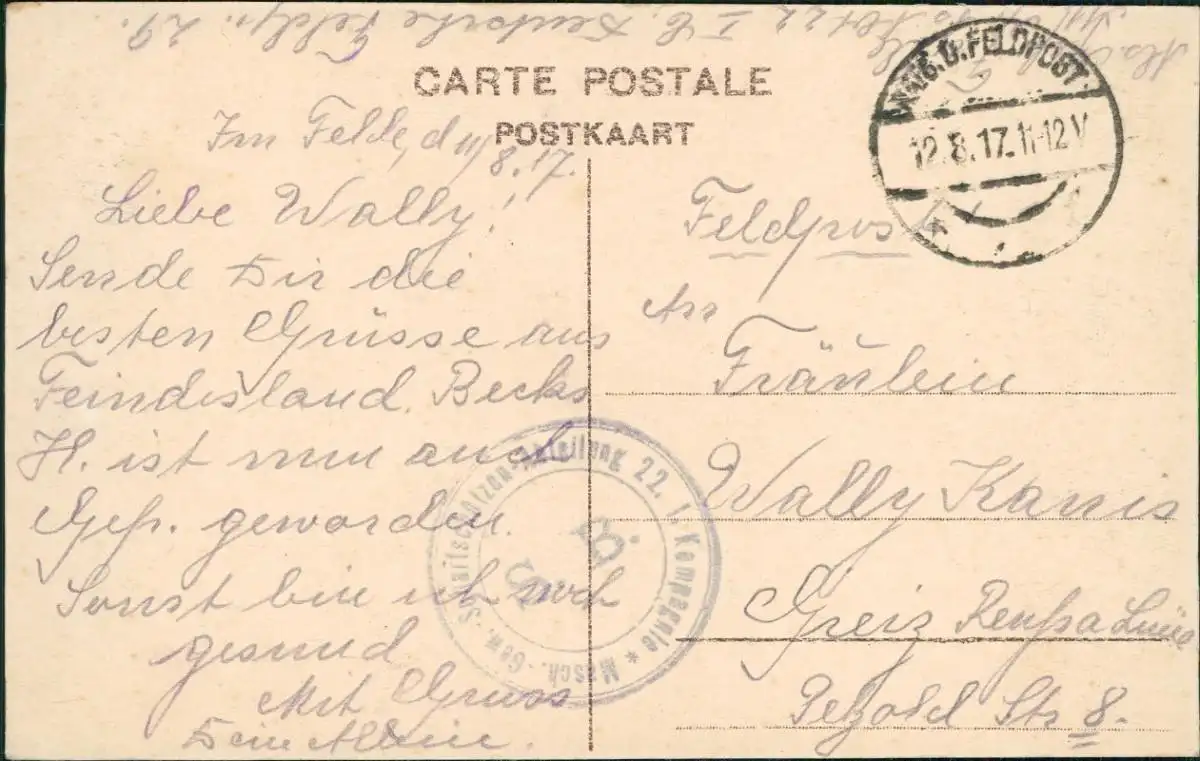 Deutsche Feldp. 29.
CARTE POSTALE
POSTKAART
Im Felde, d 11/8.17.
Liebe Wally!
Sende Dir die
besten Grüsse aus
Feindesland. Becks
H. ist nun auch
Gefr. geworden.
Sonst bin ich noch
gesund
Mit Gruss
Dein
D. FELDPOST
12.8.17.11-12V
Feldpost
An
Fräulein
Wally Kanis
Greiz Reuss a Linie
Pezold Str 8.
Masch.-Gew.-Scharfschützen-Abteilung 22. 1. Kompagnie *
B.